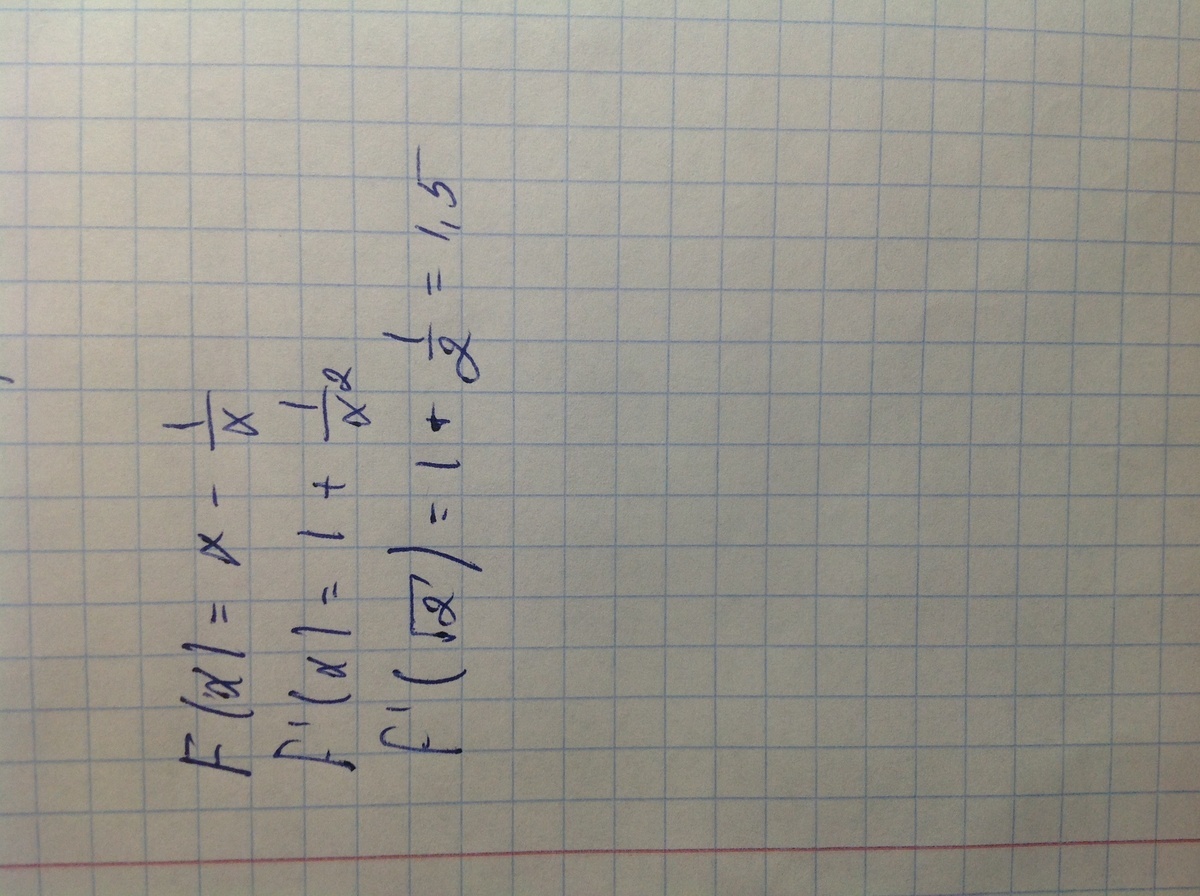 F(x) = x - 1/x
F'(x) = 1 + 1/x²
F'(√2) = 1 + 1/2 = 1,5